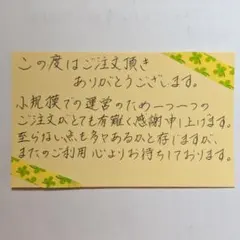 この度はご注文頂き
ありがとうございます。
小規模での運営のため一つ一つの
ご注文がとても有難く感謝申し上げます。
至らない点も多々あるかと存じますが、
またのご利用 心よりお待ちしております。